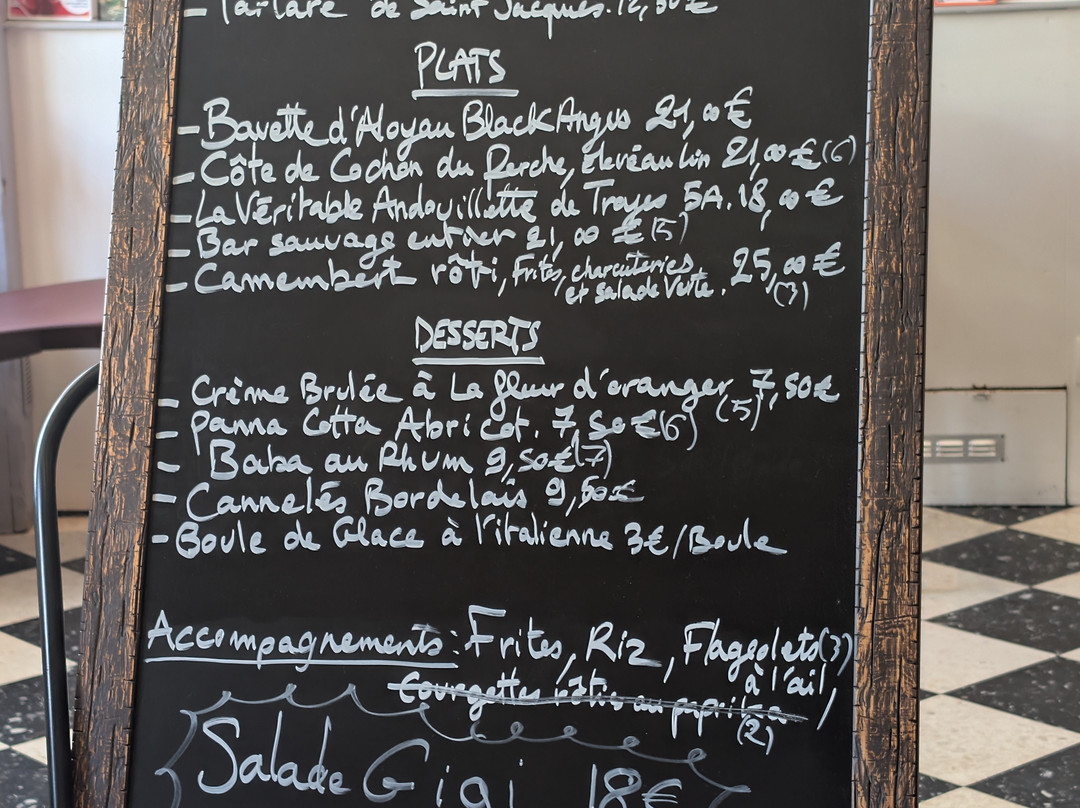 - Tartare de Saint Jacques. 12,50€
PLATS
- Bavette d'Aloyau Black Angus 21,00€
- Côte de Cochon du Perche, élevé au lin 21,00€(6)
- La Véritable Andouillette de Troyes 5A. 18,00€
- Bar sauvage entier 21,00€(5)
- Camembert rôti, frites, charcuteries 25,00€
et salade verte. (3)
DESSERTS
- Crème Brulée à La fleur d'oranger, 7,50€
(5)
- Panna Cotta Abricot. 7,50€(6)
- Baba au Rhum 9,50€(7)
- Cannelés Bordelais 9,50€
- Boule de Glace à l'italienne 3€/Boule
Accompagnements : Frites, Riz, Flageolets(3)
à l'ail,
Courgettes rôties au paprika
(2)
Salade Gigi 18€